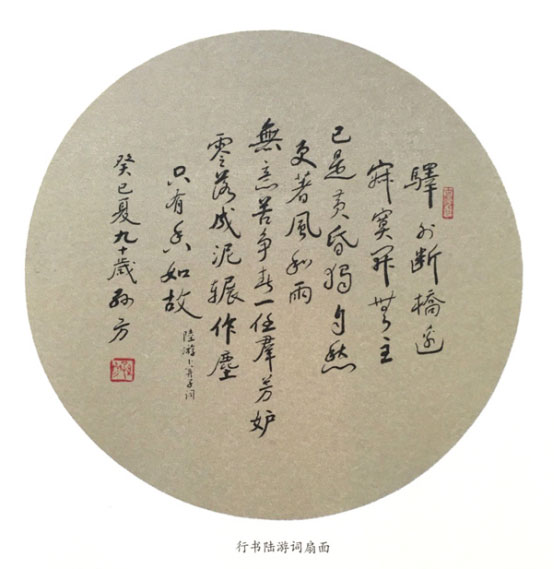 驛外断橋邊
寂寞開無主
已是黄昏獨自愁
更著風和雨
無意苦争春一任羣芳妒
零落成泥輾作塵
只有香如故
陸游卜算子词
癸巳夏九十歲孙方
行书陆游词扇面